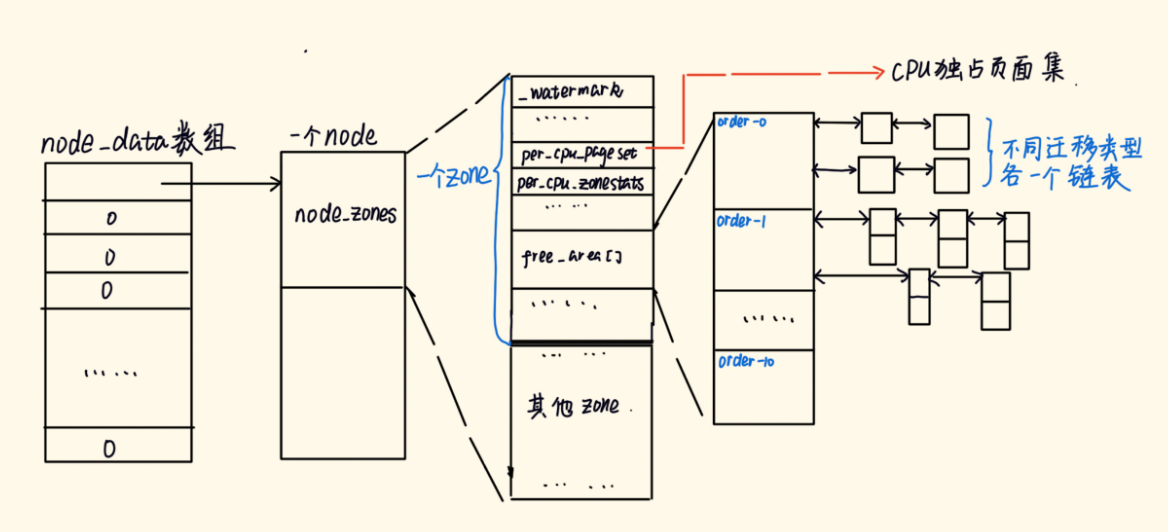 node_data数组
0
0
0
……
0
一个node
node_zones
一个zone
_watermark
……
per_cpu_pageset
per_cpu_zonestats
……
free_area[]
……
……
其他 zone.
……
CPU独占页面集
order-0
order-1
……
order-10
不同迁移类型
各一个链表